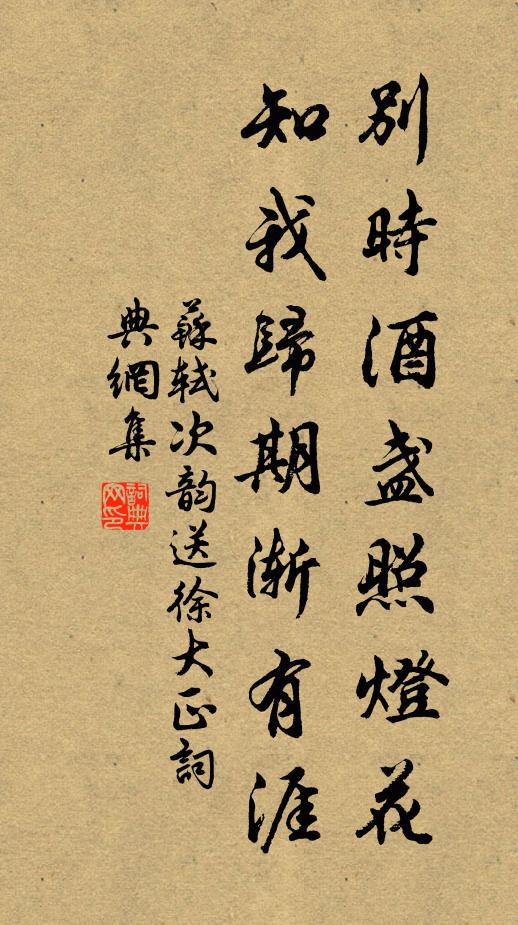 別時酒盞照燈花
知我歸期漸有涯
蘇軾次韵送徐大正詞
典網集
詞典
网印